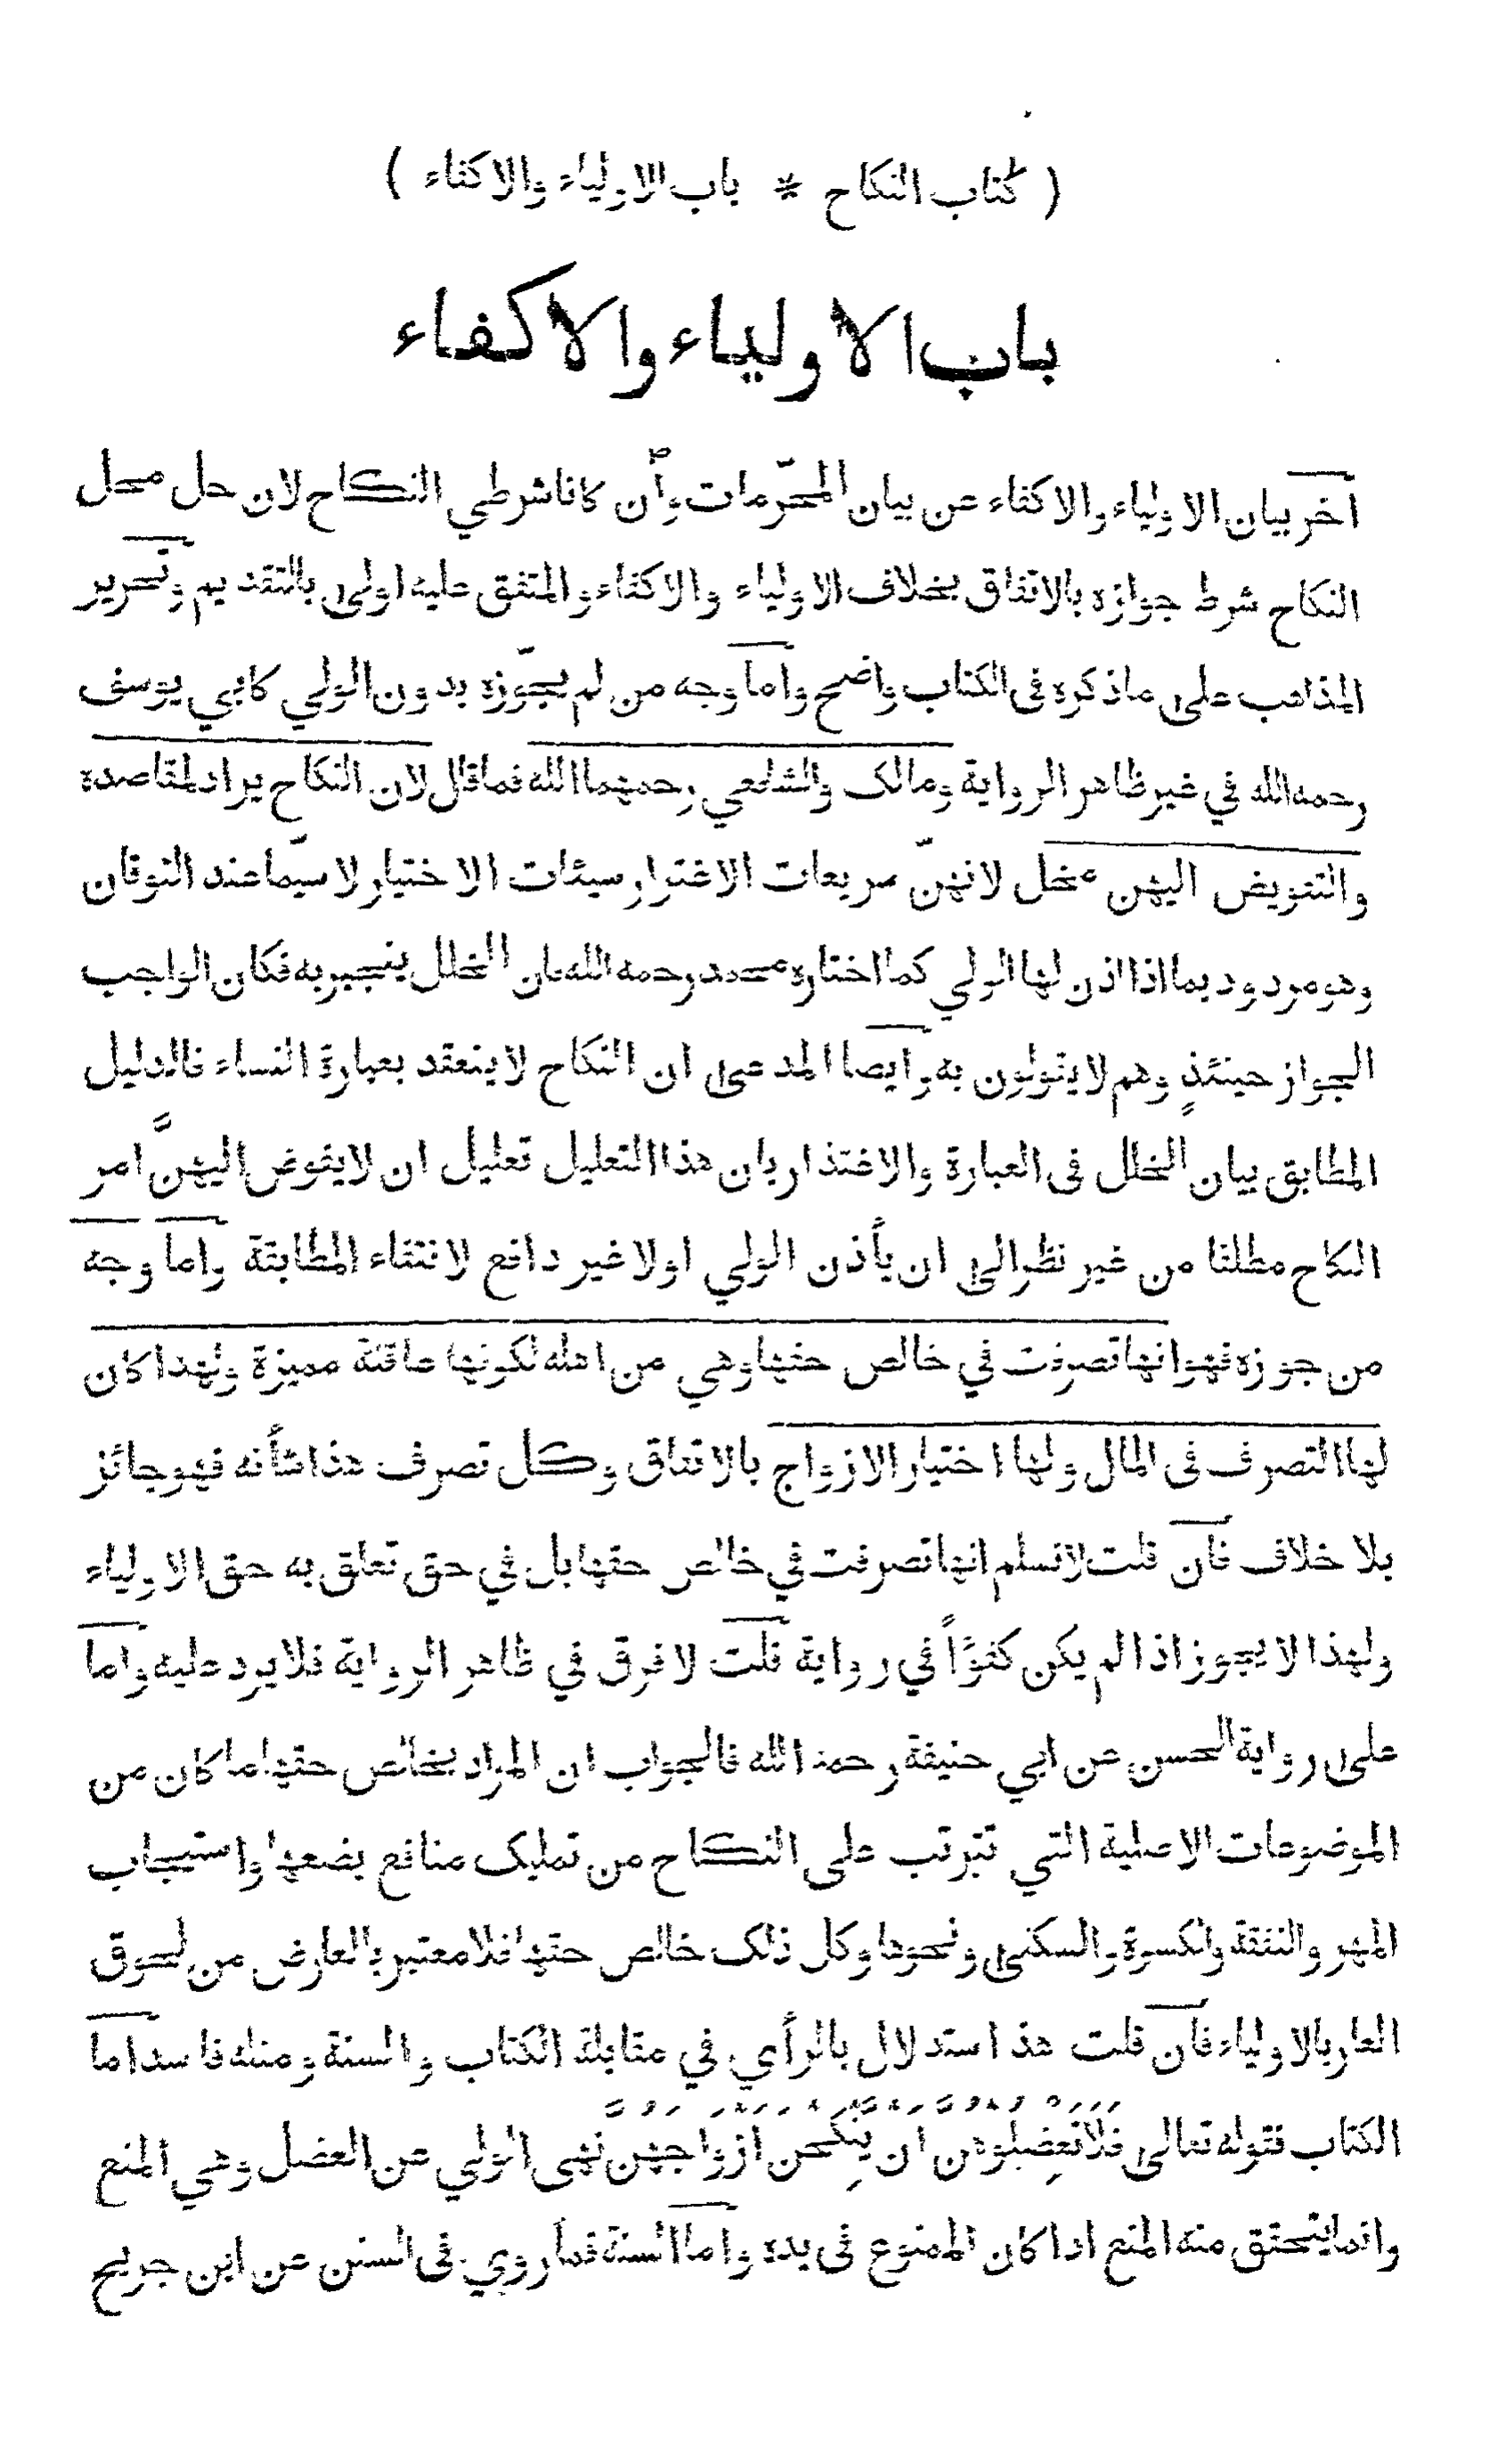 ( كتاب النكاح * باب الاولياء والاكفاء )
باب الاولياء والاكفاء
اخر بيان الاولياء والاكفاء عن بيان المحرّمات وأن كانا شرطي النكاح لان حل محل
النكاح شرط جوازه بالاتفاق بخلاف الاولياء والاكفاء والمتفق عليه اولى بالتقديم وتحرير
المذاهب على ماذكره فى الكتاب واضح واما وجه من لم يجوّزه بدون الولي كابي يوسف
رحمه الله في غير ظاهر الرواية ومالك والشافعي رحمهما الله فما قال لان النكاح يراد لمقاصده
والتفويض اليهن مخل لانهنّ سريعات الاغترار سيئات الاختيار لا سيّما عند التوقان
وهو مردود بما اذا اذن لها الولي كما اختاره محمد رحمه الله فان الخلل ينجبر به فكان الواجب
الجواز حينئذٍ وهم لا يقولون به وايضا المدعى ان النكاح لا ينعقد بعبارة النساء فالدليل
المطابق بيان الخلل فى العبارة والاعتذار بان هذا التعليل تعليل ان لا يفوض اليهنَّ امر
النكاح مطلقا من غير نظر الى ان يأذن الولي اولا غير دافع لانتفاء المطابقة واما وجه
من جوزه فهو انها تصرفت في خالص حقها وهي من اهله لكونها عاقلة مميزة ولهذا كان
لها التصرف فى المال ولها اختيار الازواج بالاتفاق وكل تصرف هذا شأنه فهو جائز
بلا خلاف فان قلت لا نسلم انها تصرفت في خالص حقها بل في حق تعلق به حق الاولياء
ولهذا لا يجوز اذا لم يكن كفؤاً في رواية قلت لا فرق في ظاهر الرواية فلا يرد عليه واما
على رواية الحسن عن ابي حنيفة رحمه الله فالجواب ان المراد بخالص حقها ما كان من
الموضوعات الاصلية التي تترتب على النكاح من تمليك منافع بضعها واستيجاب
المهر والنفقة والكسوة والسكنى ونحوها وكل ذلك خالص حقها فلا معتبر بالعارض من لحوق
العار بالاولياء فان قلت هذا استدلال بالرأي في مقابلة الكتاب والسنة ومثله فاسد اما
الكتاب فقوله تعالى فَلَا تَعْضُلُوهُنَّ أَنْ يَنْكِحْنَ أَزْوَاجَهُنَّ نهى الولي عن العضل وهي المنع
وانما يتحقق منه المنع اذا كان الممنوع فى يده واما السنة فما روي فى السنن عن ابن جريج